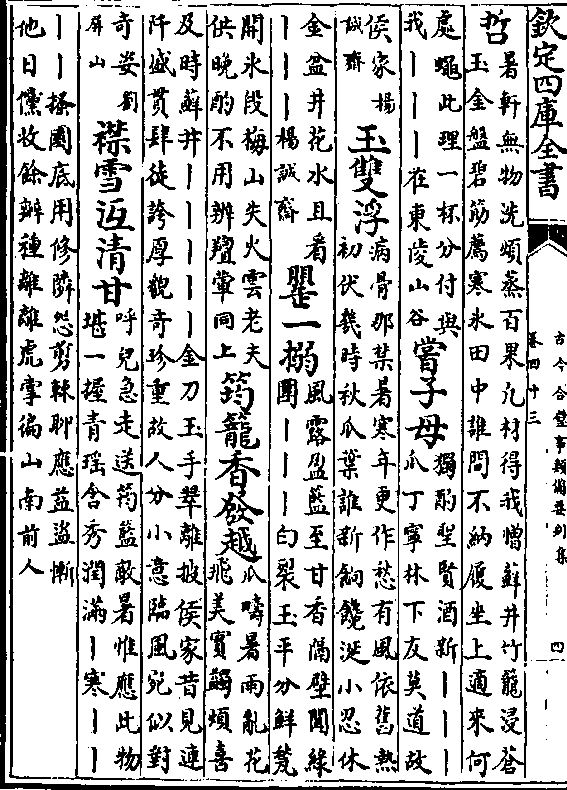 欽定四庫全書
古今合璧事類備要別集
卷四十三
四
哲
暑軒無物洗煩蒸百果凡材得我憎蘇井竹籠浸蒼
玉金盤碧筯薦寒氷田中誰問不納履坐上適來何
處蠅此理一杯分付與
我丨丨丨丨在東陵山谷
嘗子母
獨酌聖賢酒新丨丨丨
瓜丁寧林下友莫道故
侯家楊
誠齋
玉雙浮
病骨那禁暑寒年更作愁有風依舊熱
初伏幾時秋瓜葉誰新餉饞涎小忍休
金盆井花水且看
丨丨丨楊誠齋
罌一搦
風露盈籃至甘香隔壁聞綠
團丨丨丨白裂玉平分鮮甃
開氷段梅山失火雲老夫
供晚酌不用辨羶葷同上
筠籠香發越
瓜疇暑雨亂花
飛美實蠲煩喜
及時蘇井丨丨丨丨丨金刀玉手翠離披侯家昔見連
阡盛貰肆徒誇厚觀奇珍重故人分小意臨風宛似對
奇姿劉
屏山
襟雪迊清甘
呼兒急走送筠籃敵暑惟應此物
堪一握青瑶含秀潤滿丨寒丨丨
丨丨搔園底用修隣怨剪棘聊應益盜慚
他日儻收餘瓣種離離虎掌徧山南前人